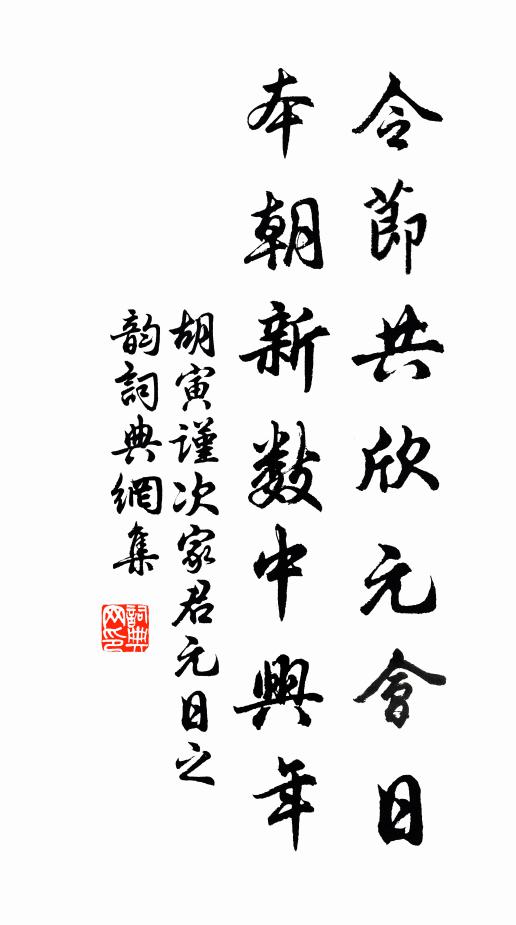 令節共欣元會日
本朝新數中興年
胡寅謹次家君元日之
韵詞典網集
詞典网印